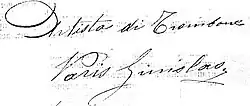 Artista di Trombone
Paris Ginislas.